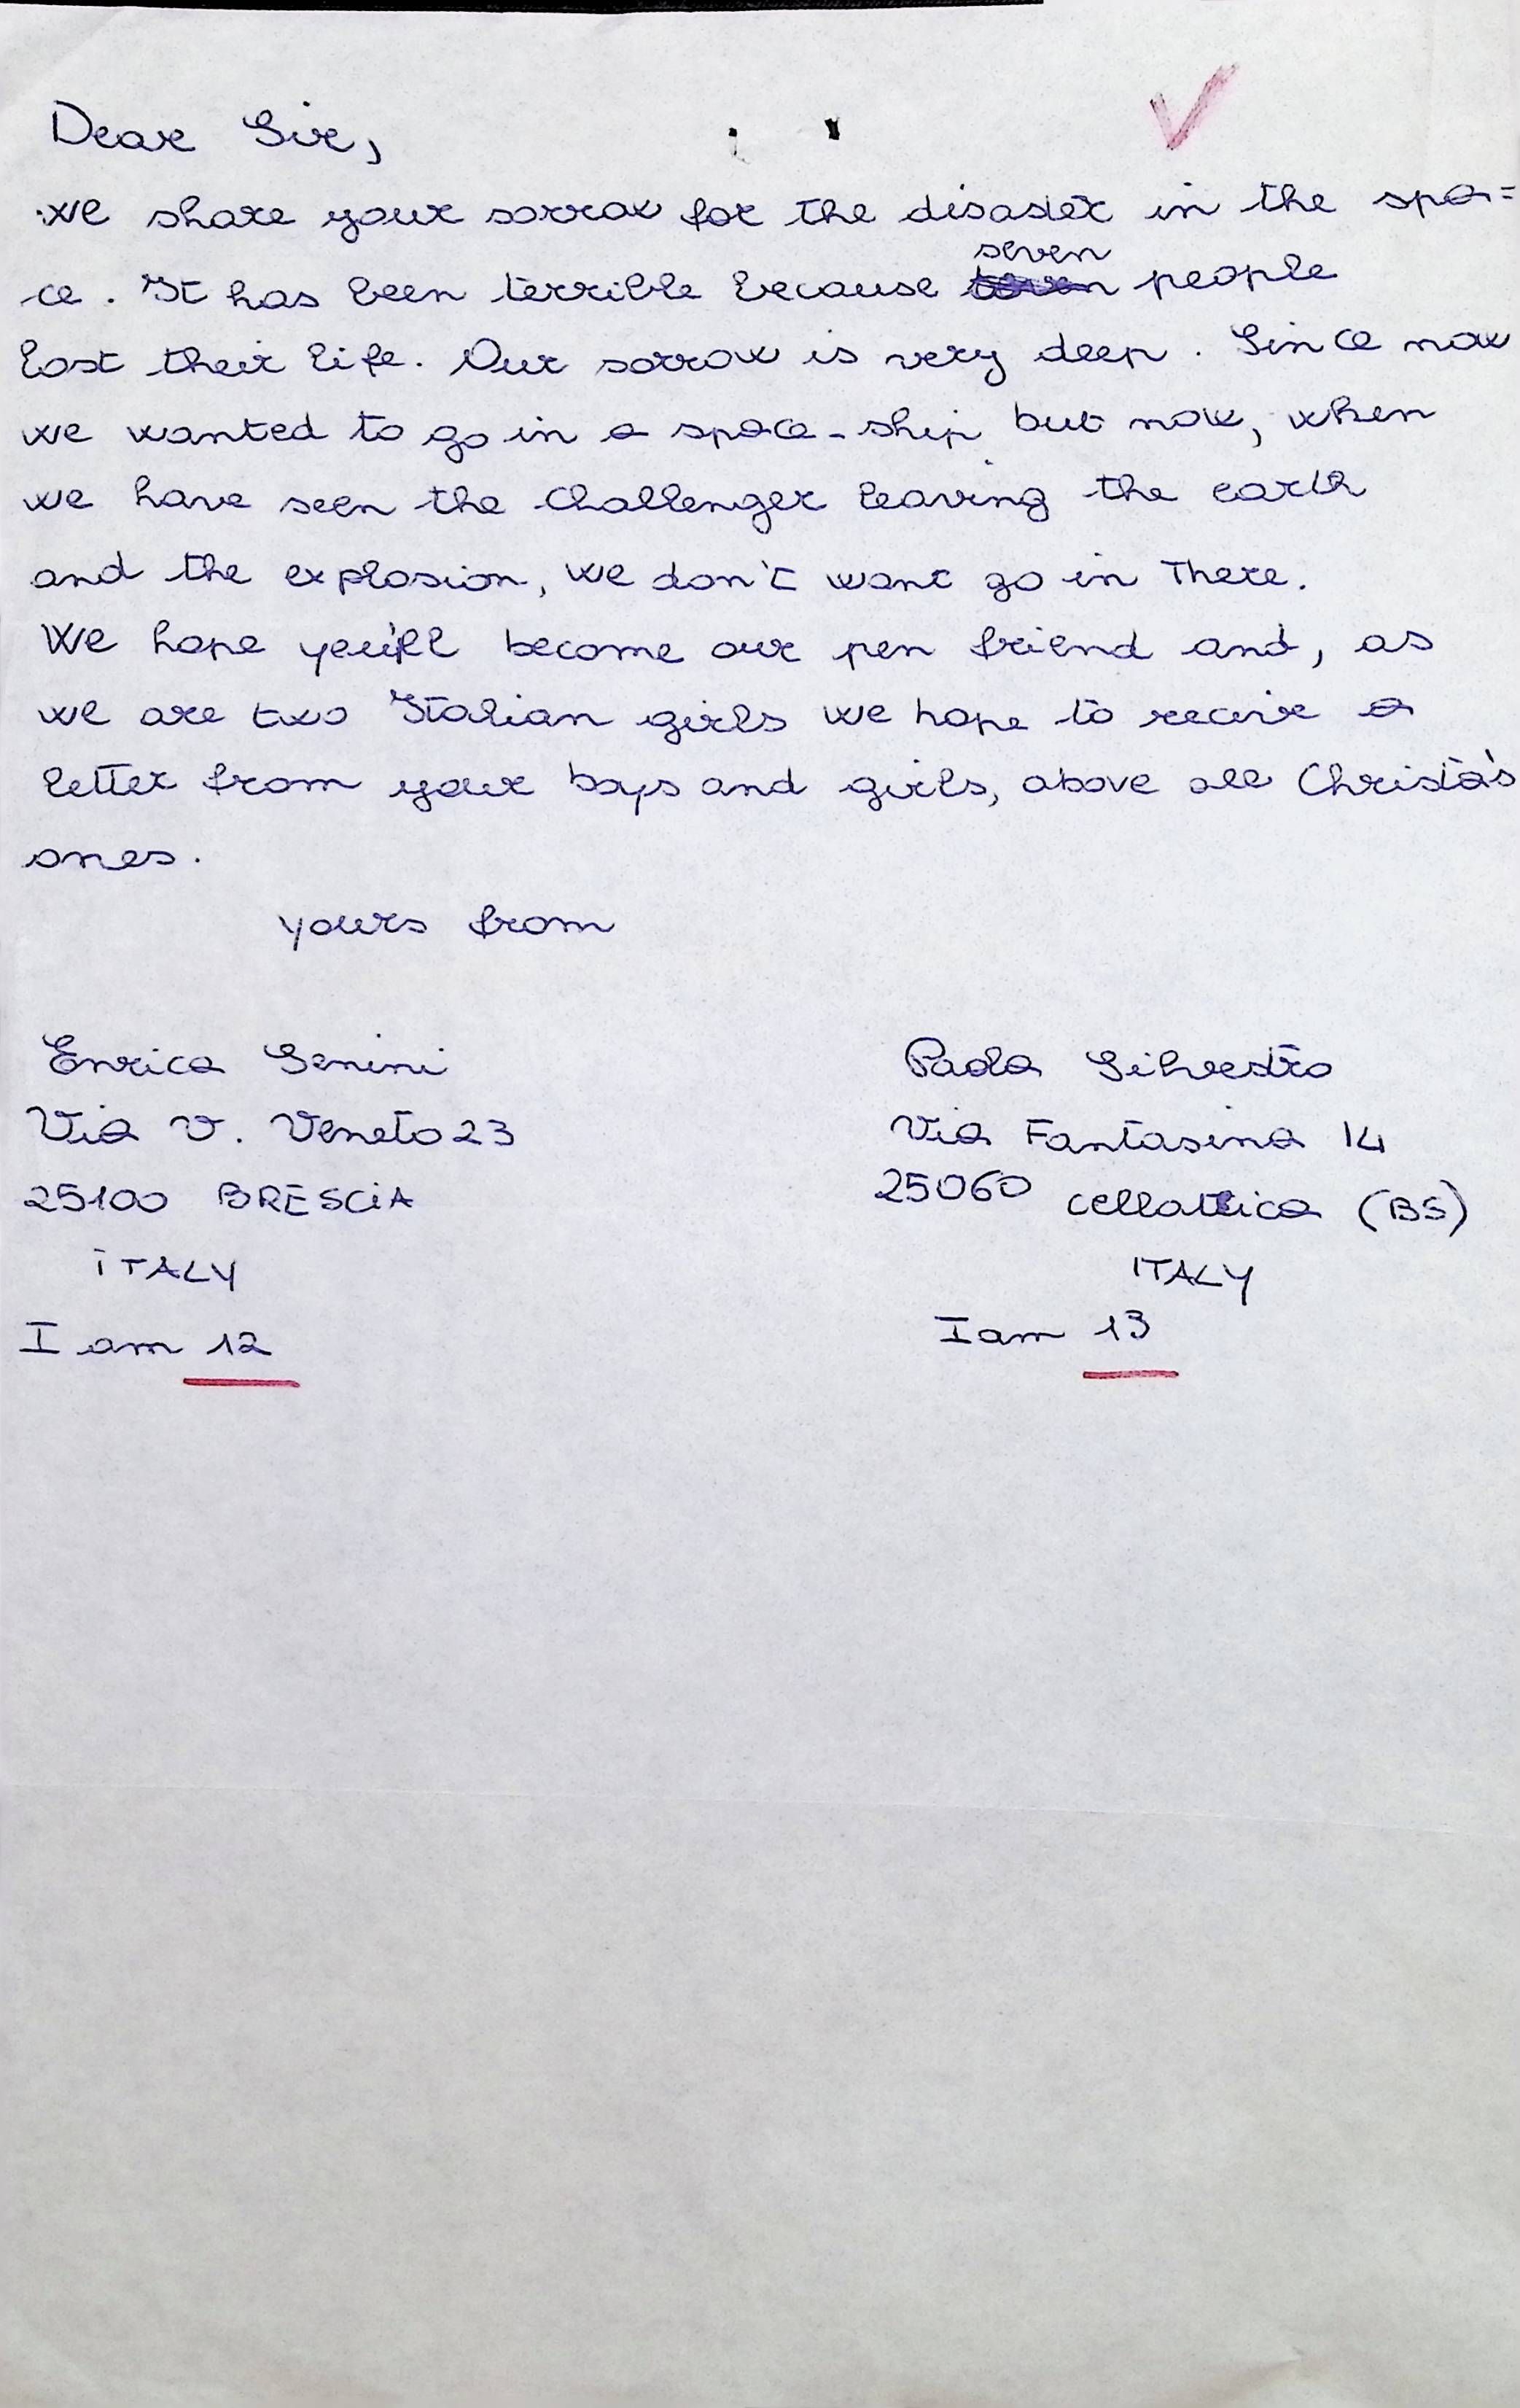 Dear Sir,
we share your sorrow for the disaster in the spa=
ce. It has been terrible because seven people
lost their life. Our sorrow is very deep. Since now
we wanted to go in a space-ship but now, when
we have seen the Challenger leaving the earth
and the explosion, we don't want go in There.
We hope you'll become our pen friend and, as
we are two Italian girls we hope to receive a
letter from your boys and girls, above all Christa's
ones.
yours from
Enrica Senini
Via V. Veneto 23
25100 BRESCIA
ITALY
I am 12
Paola Silvestro
Via Fantasina 14
25060 Cellatica (BS)
ITALY
I am 13